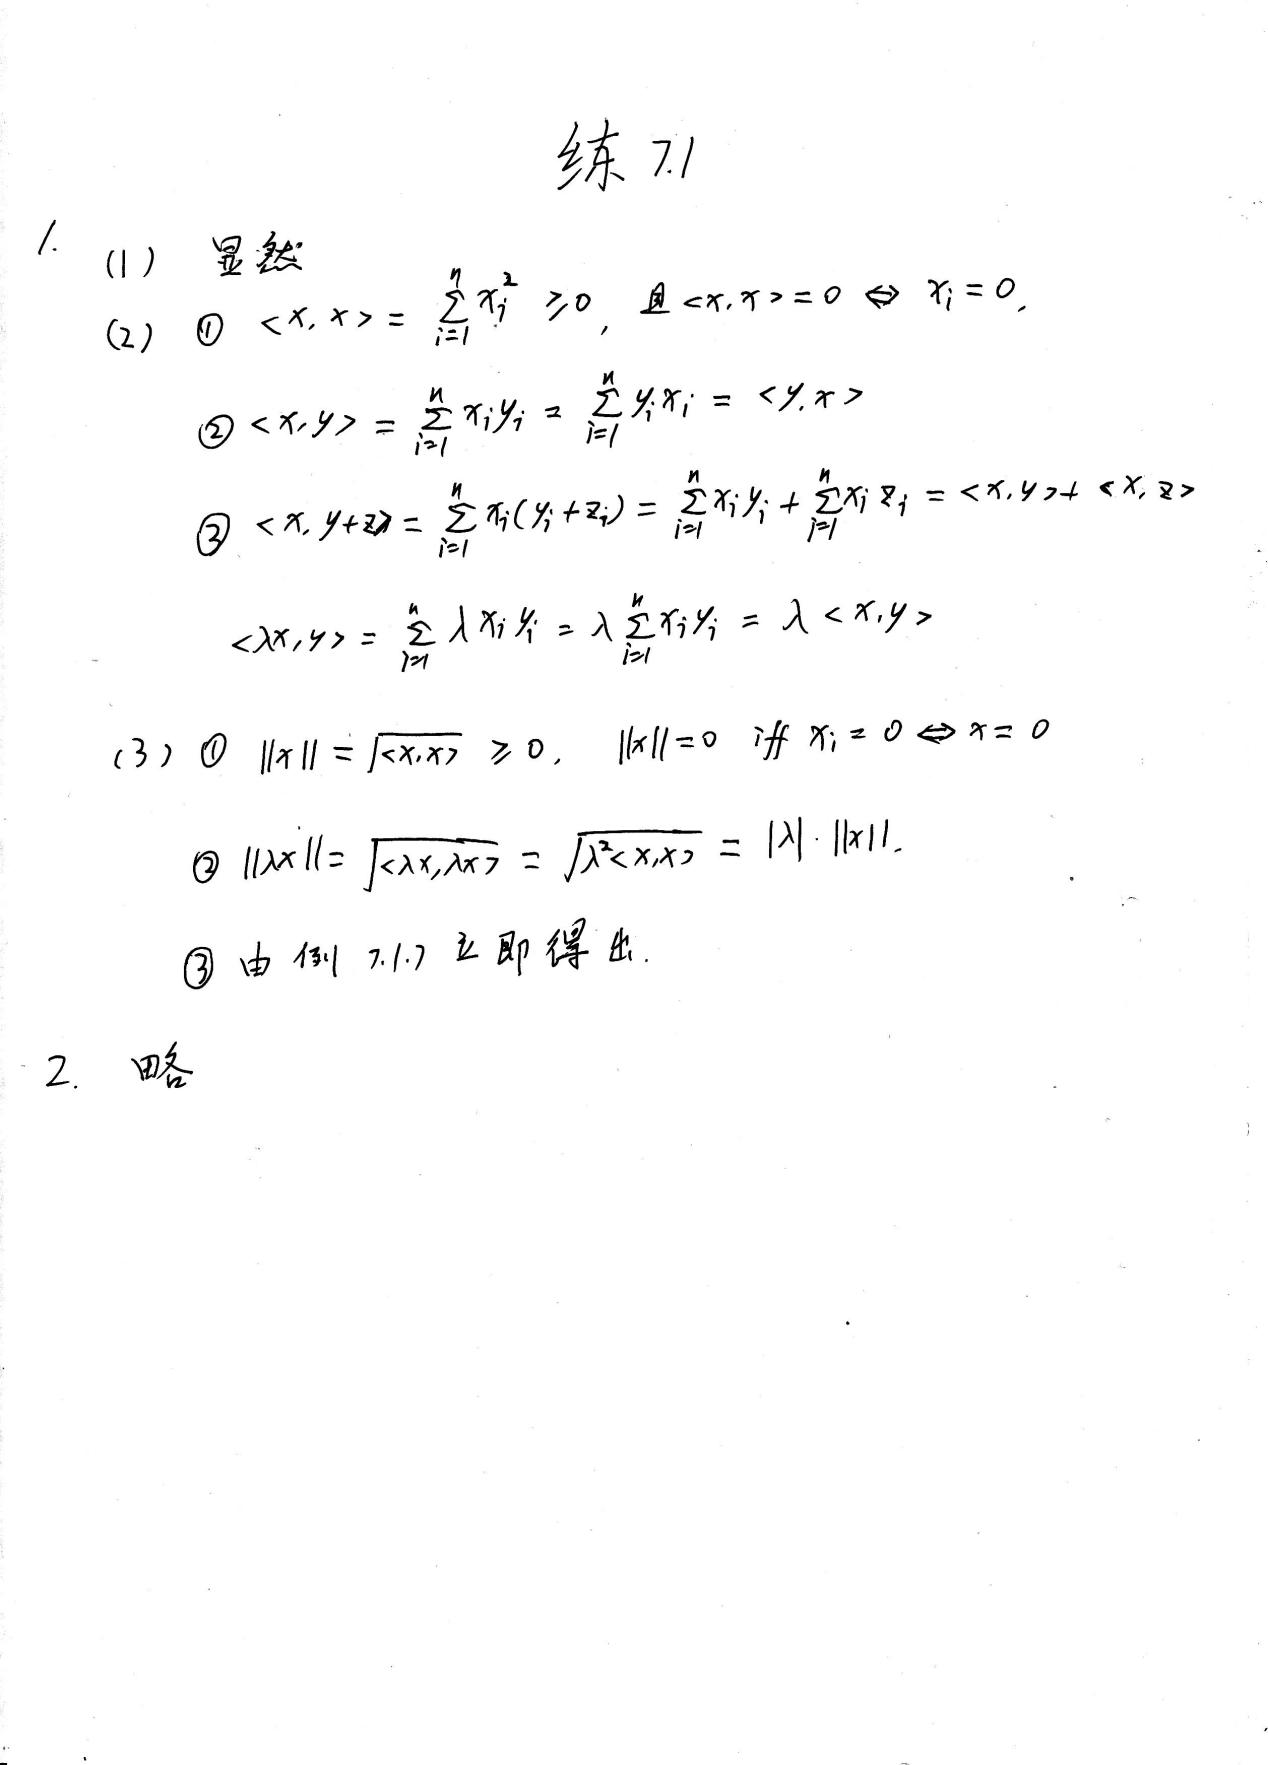 练 7.1
1. (1) 显然
(2) ① <x, x> = ∑_{i=1}^{n} x_i^2 ≥ 0, 且 <x, x> = 0 ⇔ x_i = 0.
② <x, y> = ∑_{i=1}^{n} x_i y_i = ∑_{i=1}^{n} y_i x_i = <y, x>
③ <x, y+z> = ∑_{i=1}^{n} x_i(y_i + z_i) = ∑_{i=1}^{n} x_i y_i + ∑_{i=1}^{n} x_i z_i = <x, y> + <x, z>
<λx, y> = ∑_{i=1}^{n} λ x_i y_i = λ ∑_{i=1}^{n} x_i y_i = λ <x, y>
(3) ① ||x|| = √<x, x> ≥ 0, ||x|| = 0 iff x_i = 0 ⇔ x = 0
② ||λx|| = √<λx, λx> = √λ^2<x, x> = |λ| · ||x||.
③ 由例 7.1.7 立即得出.
2. 略